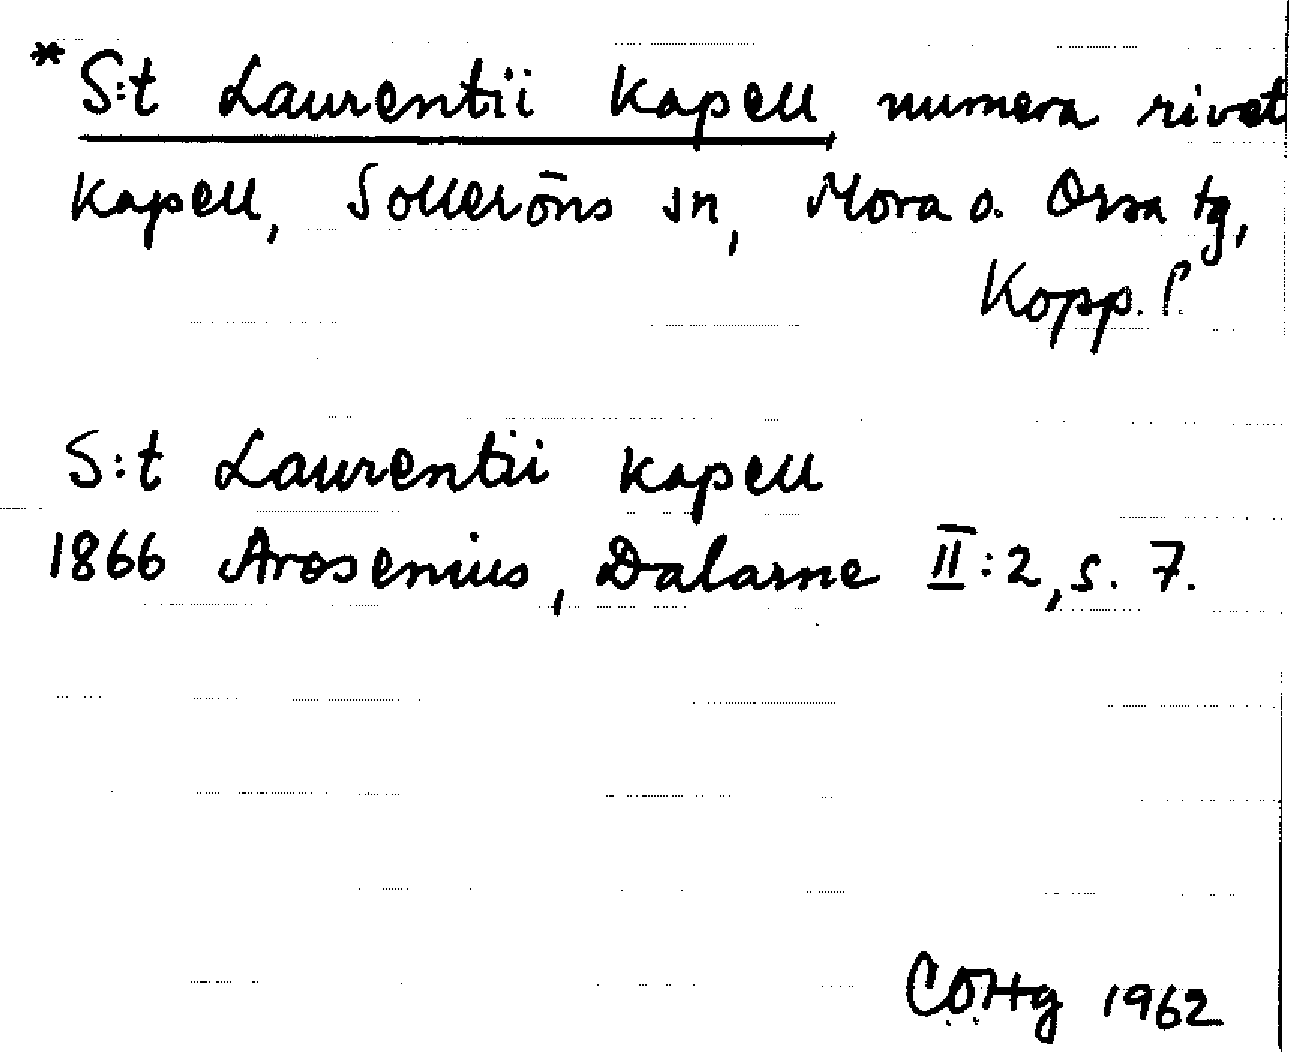 *S:t Laurentii Kapell, numera rivet
Kapell, Solleröns sn, Mora o. Orsa tg,
Kopp. l.
S:t Laurentii Kapell
1866 Arosenius, Dalarne II:2, s. 7.
COHg 1962